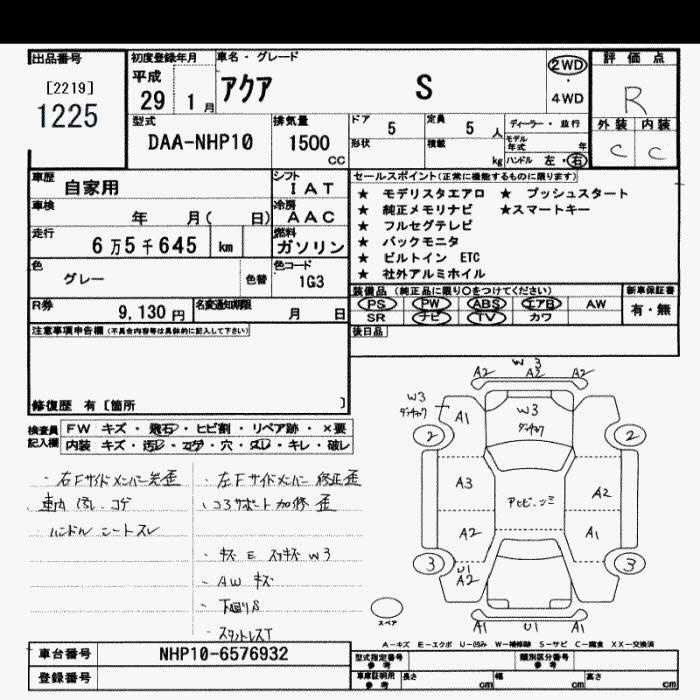 出品番号
[2219]
1225
初度登録年月
平成
29 1月
車名・グレード
アクア S
2WD
・
4WD
評価点
R
外装 内装
C C
型式
DAA-NHP10
排気量
1500
CC
ドア 5
定員 5 人
形状
積載 kg
ディーラー・並行
モデル年式 年
ハンドル 左・右
車歴
自家用
シフト
IAT
車検
年 月( 日)
冷房
AAC
走行
6万5千645 km
燃料
ガソリン
色
グレー
色替
色コード
1G3
R券
9,130円
名変通知期限
月 日
セールスポイント(正常に機能するものに限ります)
★ モデリスタエアロ ★ プッシュスタート
★ 純正メモリナビ ★スマートキー
★ フルセグテレビ
★ バックモニタ
★ ビルトイン ETC
★ 社外アルミホイル
装備品 (純正品に限り○をつけてください)
PS PW ABS エアB AW
SR ナビ TV カワ
新車保証書
有・無
後日品
注意事項申告欄 (不具合内容等は具体的に記入して下さい)
修復歴 有 [箇所 ]
検査員
記入欄
FW キズ・飛石・ヒビ割・リペア跡・×要
内装 キズ・汚レ・コゲ・穴・スレ・キレ・破レ
・右Fサイドメンバー先歪
・車内 汚レ、コゲ
・ハンドル シートスレ
・左Fサイドメンバー 修正歪
・コアサポート加修 歪
・キズ E W3
・AW キズ
・下廻りS
・スタットレスT
W3
A2 A2 A2
W3
A1
W3
2 2
A3
A2
A2
A1
3 3
U1
A2
A1 U1 A1
スペア
A-キズ E-エクボ U-凹み W-補修跡 S-サビ C-腐食 XX-交換済
車台番号
NHP10-6576932
登録番号
型式指定番号
参考
類別区分番号
参考
車庫証明用
参考
長さ cm
幅 cm
高さ cm